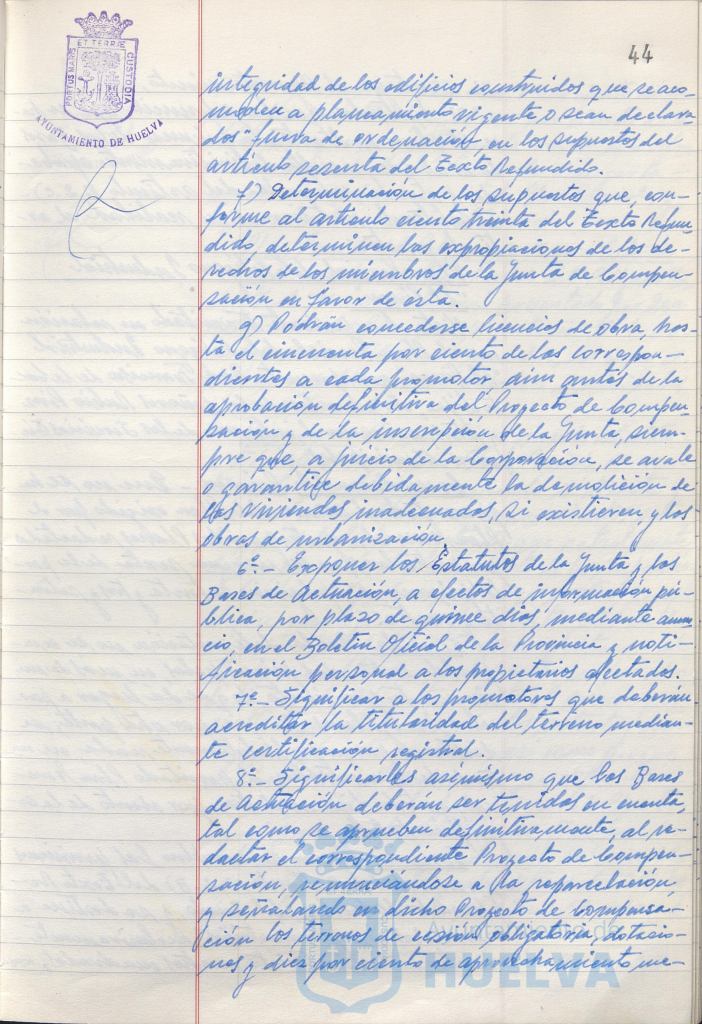 44
PORTUS MARIS ET TERRÆ CUSTODIA
AYUNTAMIENTO DE HUELVA
integridad de los edificios construidos que se aco-
moden a planeamiento vigente o sean declara-
dos "fuera de ordenación en los supuestos del
artículo sesenta del Texto Refundido.
f) Determinación de los supuestos que, con-
forme al artículo ciento treinta del Texto Refun-
dido, determinen las expropiaciones de los de-
rechos de los miembros de la Junta de Compen-
sación en favor de ésta.
g) Podrán concederse licencias de obra, has-
ta el cincuenta por ciento de las correspon-
dientes a cada promotor, aún antes de la
aprobación definitiva del Proyecto de Compen-
sación y de la inscripción de la Junta, siem-
pre que, a juicio de la Corporación, se avale
o garantice debidamente la demolición de
las viviendas inadecuadas, si existieren, y las
obras de urbanización.
6º.- Exponer los Estatutos de la Junta y las
Bases de Actuación, a efectos de información pú-
blica, por plazo de quince días, mediante anun-
cio, en el Boletín Oficial de la Provincia y noti-
ficación personal a los propietarios afectados.
7º.- Significar a los promotores que deberán
acreditar la titularidad del terreno median-
te certificación registral.
8º.- Significarles asimismo que las Bases
de Actuación deberán ser tenidas en cuenta,
tal como se aprueben definitivamente, al re-
dactar el correspondiente Proyecto de Compen-
sación, renunciándose a la reparcelación,
y señalando en dicho Proyecto de Compensa-
ción los terrenos de cesión obligatoria, dotacio-
nes y diez por ciento de aprovechamiento me-
Ayuntamiento de
HUELVA